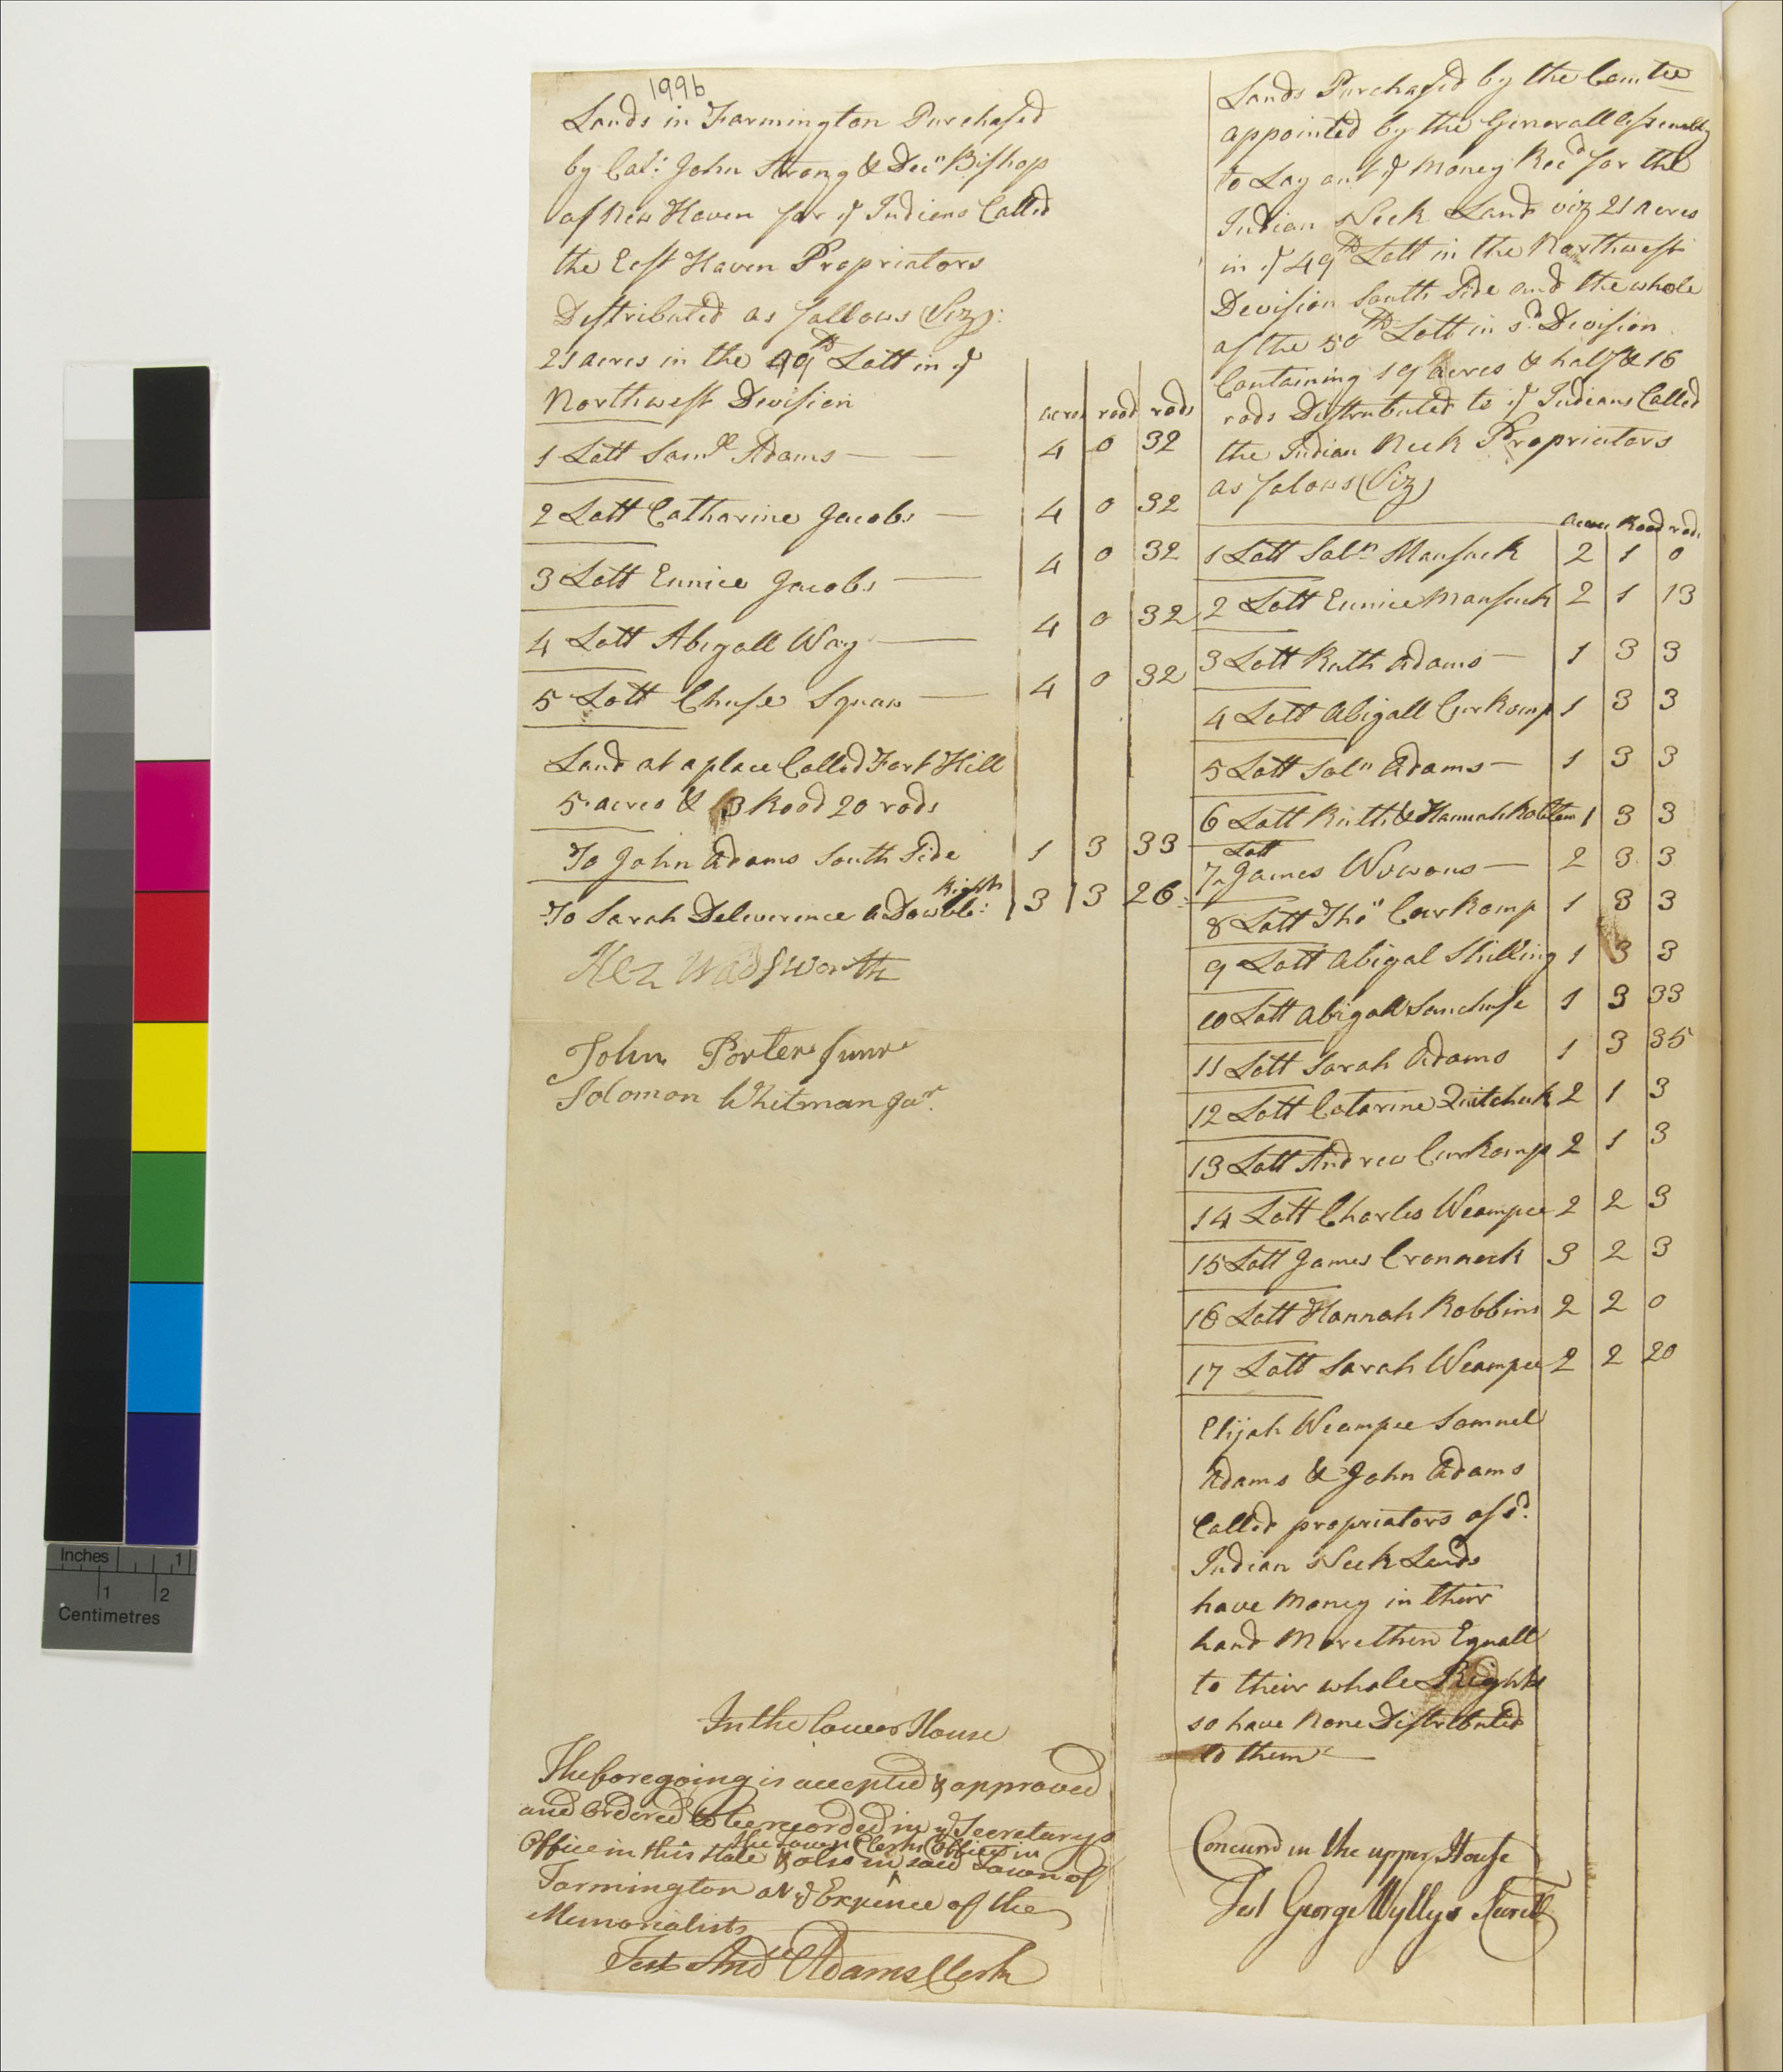 199b
Lands in Farmington Purchased
by Col: John Strong & Decn Bishop
of New Haven for ye Indians Called
the East Haven Propriators
Destributed as follows (Viz):
21 acres in the 49th Lott in ye
Northwest Devision
acres rood rods
1 Lott Samll Adams 4 0 32
2 Lott Catharine Jacobs 4 0 32
3 Lott Eunice Jacobs 4 0 32
4 Lott Abigall Way 4 0 32
5 Lott Chuse Squaw 4 0 32
Land at a place Called Fort Hill
5 acres & 3 Rood 20 rods
To John Adams South Side 1 3 33
To Sarah Deliverence a Dowble Right 3 3 26
Hez Wadsworth
John Porter Junr
Solomon Whitman Jur.
In the lower House
The foregoing is accepted & approved
and Ordered to be recorded in ye Secretarys
Office in this State & also in the Town Clerks Office in said Town of
Farmington at ye Expence of the
Memorialists
Test Andw Adams Clerk
Lands Purchased by the Comtee
appointed by the Generall Assembly
to Lay out ye Money Recd for the
Indian Neck Land viz 21 acres
in ye 49th Lott in the Northwest
Devision South Side and the whole
of the 50th Lott in sd. Devision
Containing 19 acres & half & 16
rods Destributed to ye Indians Called
the Indian Neck Propriators
as folows (Viz)
acres Rood rods
1 Lott Soln Mausuck 2 1 0
2 Lott Eunice Mausuck 2 1 13
3 Lott Ruth Adams 1 3 3
4 Lott Abigall Curkomp 1 3 3
5 Lott Soln Adams 1 3 3
6 Lott Ruth & Hannah 1 3 3
7 Lott James Wowous 2 3 3
8 Lott Thos Curkomp 1 3 3
9 Lott Abigal Skilling 1 3 3
10 Lott Abigall Sanchuse 1 3 33
11 Lott Sarah Adams 1 3 35
12 Lott Catarine 2 1 3
13 Lott Andrew Curkomp 2 1 3
14 Lott Charles Weampee 2 2 3
15 Lott James Cronneck 3 2 3
16 Lott Hannah Robbins 2 2 0
17 Lott Sarah Weampee 2 2 20
Elijah Weampee Samuel
Adams & John Adams
Called propriators of sd.
Indian Neck Lands
have Money in their
hand More then Equall
to their whole Rights
so have None Distributed
to them
Concurrd in the upper House
Test George Wyllys Secretr
Inches 1
1 2
Centimetres